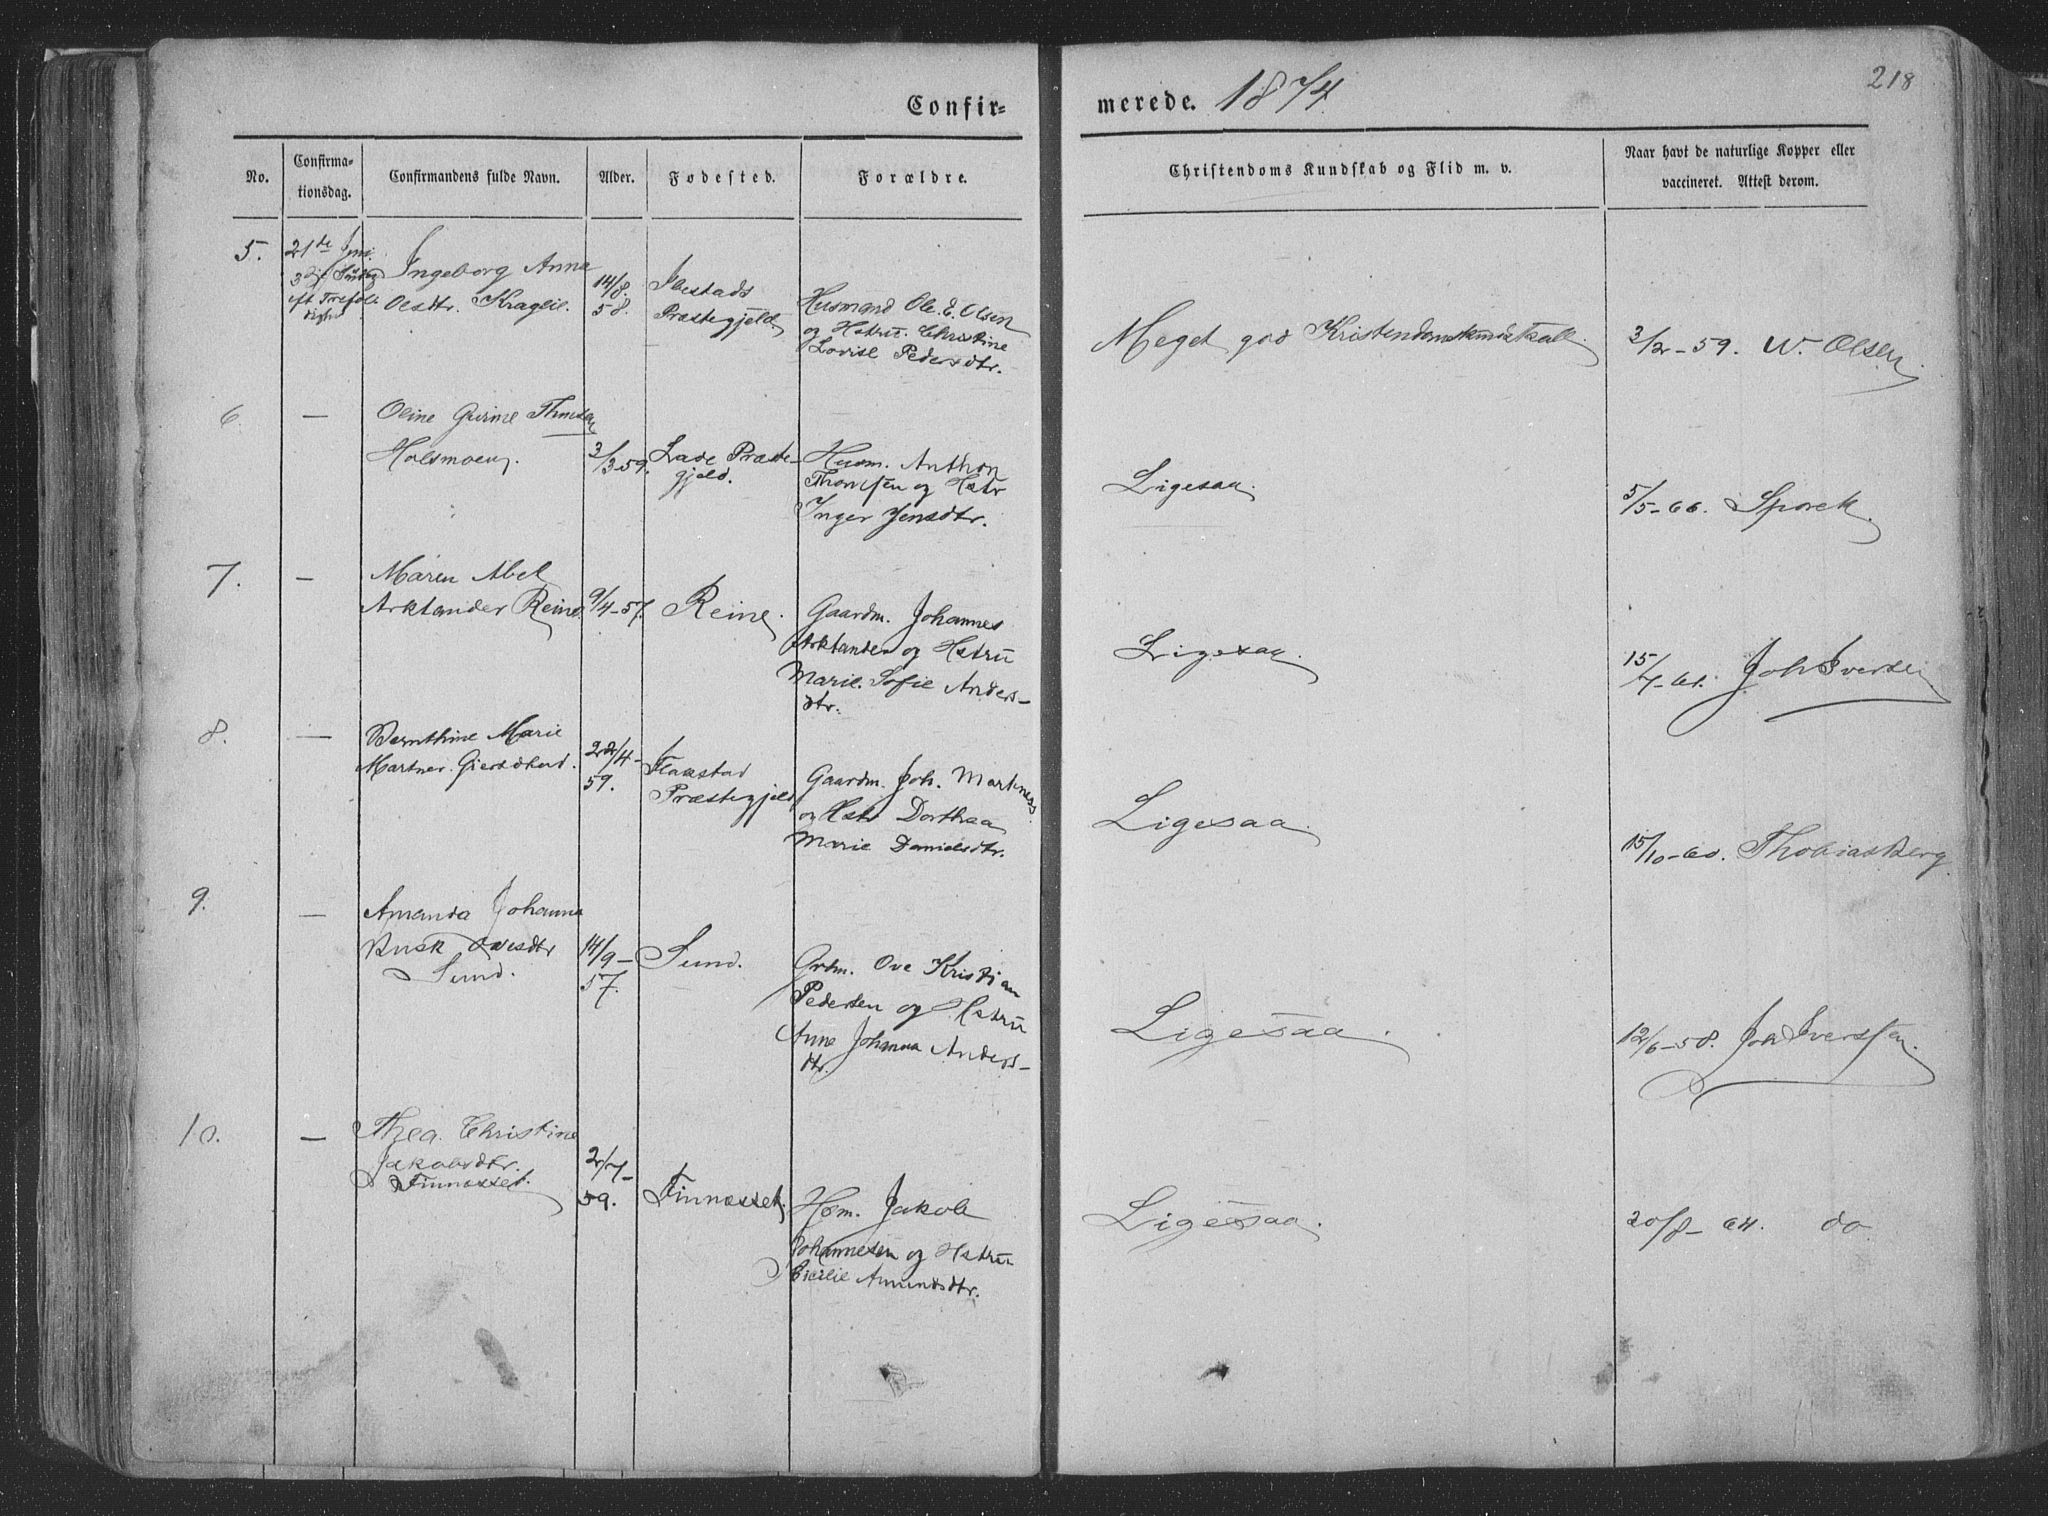 Confir=
merede. 1874
218
No.
Confirma=
tionsdag.
Confirmandens fulde Navn.
Alder.
Fødested.
Forældre.
Christendoms Kundskab og Flid m. v.
Naar havt de naturlige Kopper eller
vaccineret. Attest derom.
5.
21de Juni
3die Søndag
eft Trefol-
dighed
Ingeborg Anna
Olsdtr.
14/8.
58.
Ibestads
Præstegjeld
Husmand Ole E. Olsen
og Hstru. Christine
Lovise Pedersdtr.
Meget god Kristendomskundskab.
3/2-59. W. Olsen
6.
—
Oline Thomsen
Holsmoen.
3/3-59.
Lade Præste-
gjeld.
Husm. Anthon
Thomsen og Hstr
Inger Jensdtr.
Ligesaa.
5/5-66. Sporck.
7.
—
Maren Abel
Arktander Reine
9/4-57.
Reine.
Gaardm. Johannes
Arktander og Hstru
Marie Sofie Anders-
dtr.
Ligesaa.
15/7-61. Joh Iversen
8.
—
Bernthine Marie
22/4-
59.
Flakstad
Præstegjeld
Gaardm. Joh. Martness
og Hstr Dorthea
Marie Danielsdtr.
Ligesaa.
15/10-60. Thobias Berg
9.
—
Amanda Johanna
Busk Ovesdtr
Sund.
14/9-
57.
Sund.
Grdm. Ove Kristian
Pedersen og Hstru
Anne Johanna Anders-
dtr.
Ligesaa.
12/6-58. Joh Iverssen.
10.
—
Thea Christine
Jakobsdtr.
Finnesset.
2/7-
59.
Finnesset.
Hsm. Jakob
Johannesen og Hstru
Cicilie Amundsdtr.
Ligesaa.
20/8-64. do.